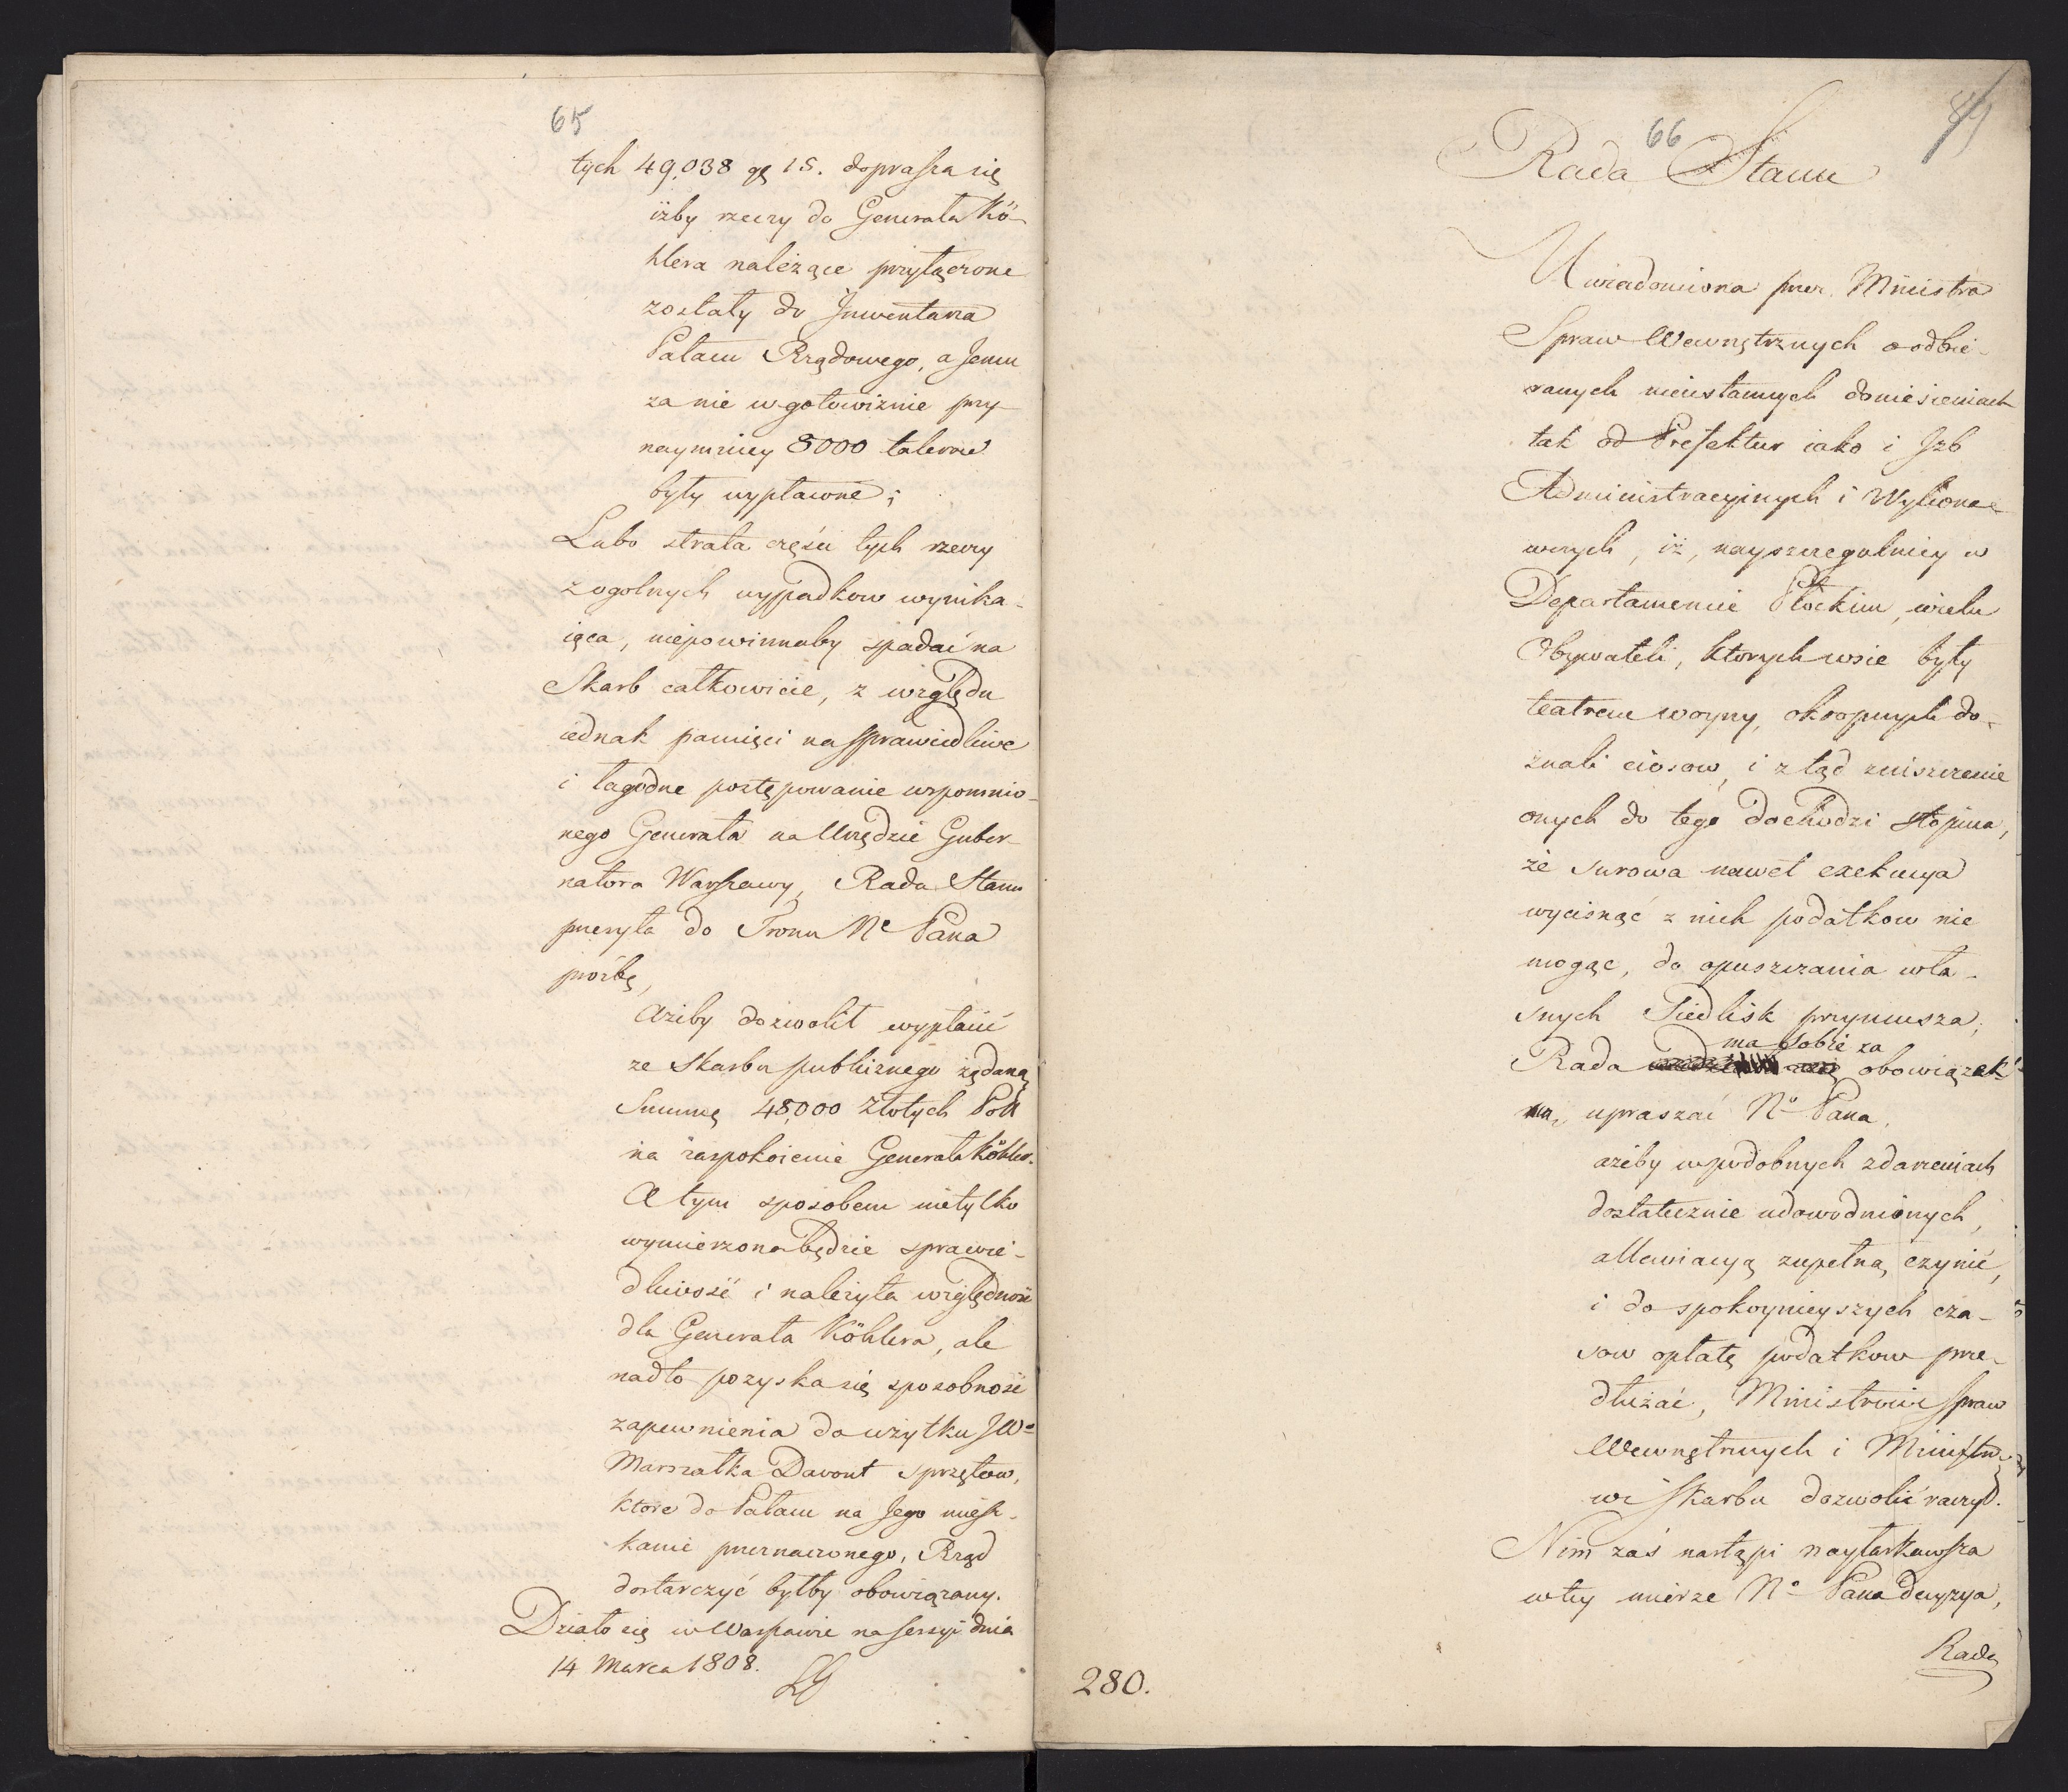 65
tych 49,038 gę 15. doprasza się
iżby rzeczy do Generała Kö-
hlera należące przyłączone
zostały do Inwentarza
Pałacu Rządowego, a Jemu
za nie w gotowiznie przy-
naymniey 8000 talerow
były wypłacone;
Lubo strata części tych rzeczy
z ogolnych wypadkow wynika-
iąca, niepowinnaby spadać na
Skarb całkowicie, z względu
iednak pamięci na sprawiedliwe
i łagodne postępowanie wspomnio-
nego Generała na Urzędzie Guber-
natora Warszawy, Rada Stanu
przesyła do Tronu Nº Pana
prośbę,
Ażeby dozwolił wypłacić
ze Skarbu publicznego żądaną
Summę 48,000 Złotych Pol
na zaspokoienie Generała Köhler.
A tym sposobem nietylko
wymierzona będzie sprawie-
dliwość i należyta względność
dla Generała Köhlera, ale
nadto pozyska się sposobność
zapewnienia do użytku JWº
Marszałka Davout sprzętow,
ktore do Pałacu na Jego miesz-
kanie przeznaczonego, Rząd
dostarczyć byłby obowiązany.
Działo się w Warszawie na sessyi dnia
14 Marca 1808.
66
Rada Stanu
Uwiadomiona przez Ministra
Spraw Wewnętrznych o odbie-
ranych nieustannych doniesieniach
tak od Prefektur iako i Izb
Administracyinych i Wykona-
wczych, iż, nayszczegulniey w
Departamencie Płockim, wielu
Obywateli, ktorych wsie były
teatrem woyny, okropnych do-
znali ciosow, i ztąd zniszczenie
onych do tego dochodzi stopnia,
że surowa nawet exekucya
wycisnąć z nich podatkow nie
mogąc, do opuszczania wła-
snych Siedlisk przymusza;
ma sobie za
Rada obowiązek
upraszać Nº Pana,
ażeby w podobnych zdarzeniach
dostatecznie udowodnionych,
allewiacyą zupełną czynić,
i do spokoynieyszych cza-
sow opłatę podatkow prze-
dłużać, Ministrowi Spraw
Wewnętrznych i Ministro-
wi Skarbu dozwolić raczył.
Nim zaś nastąpi nayłaskawsza
w tey mierze Nº Pana decyzya,
Rada
280.